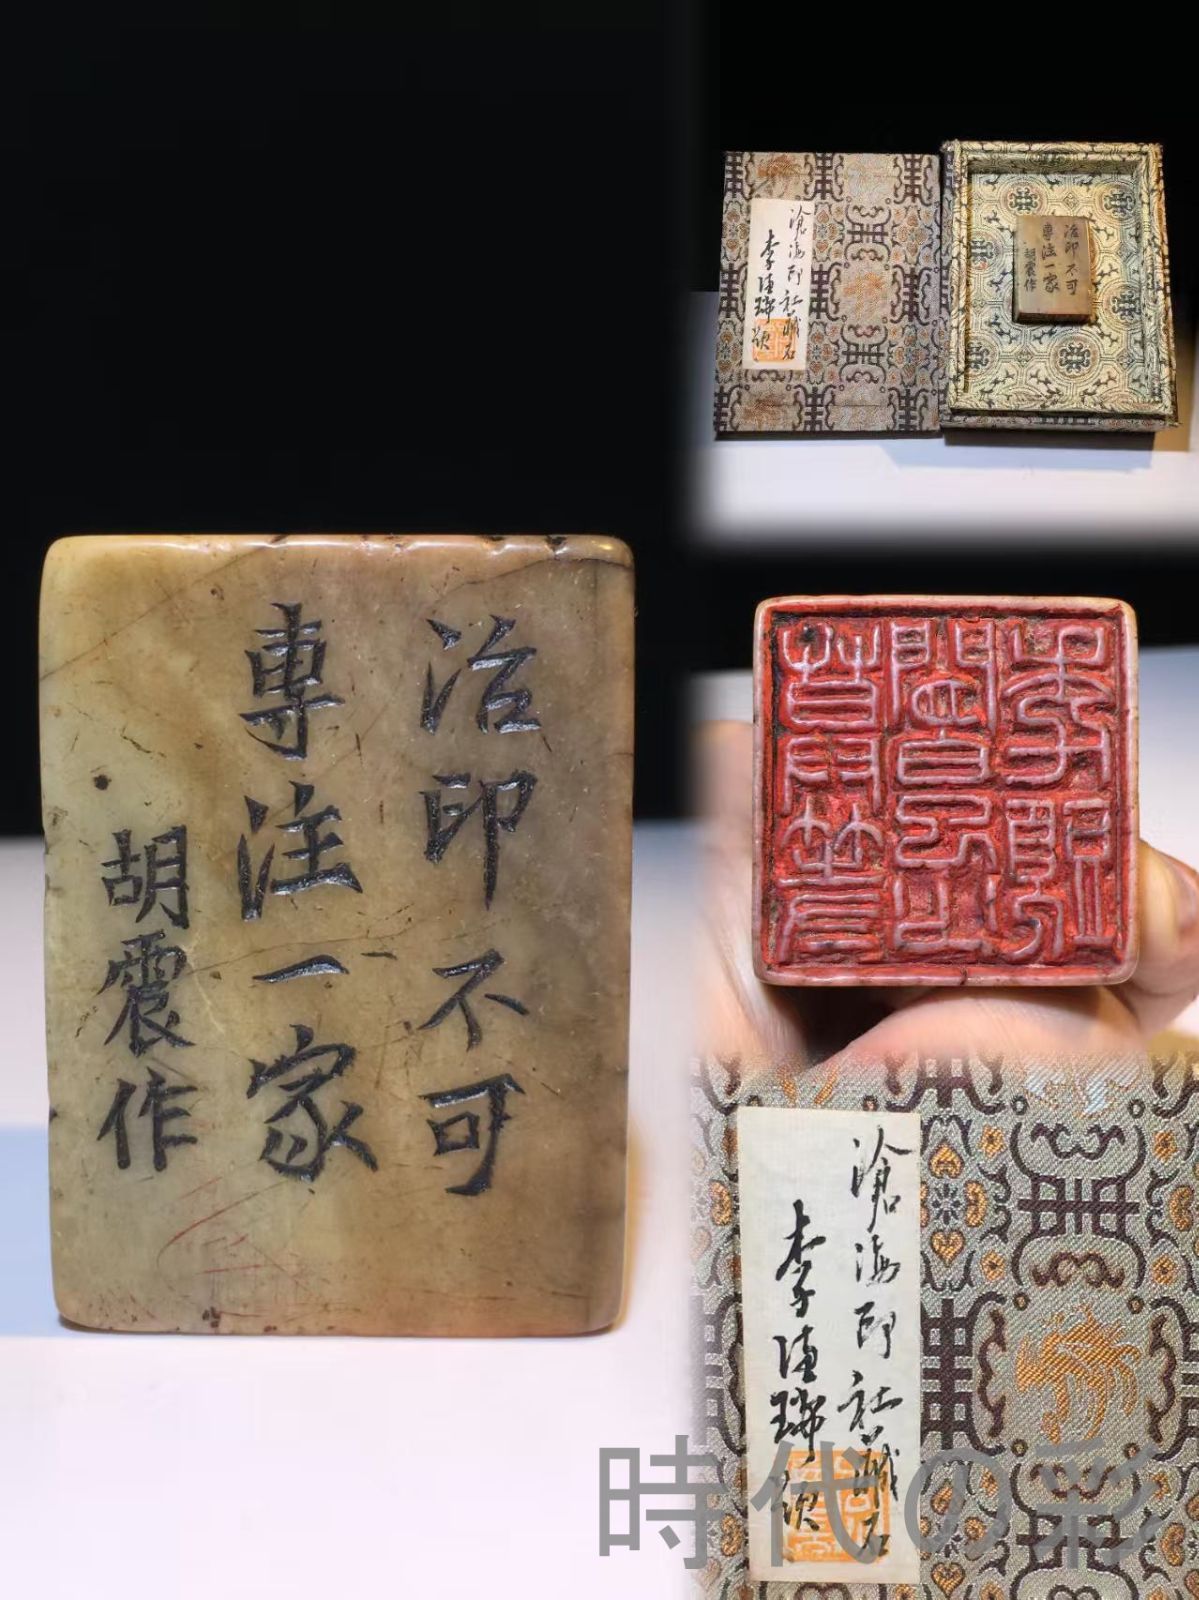 治印不可
專注一家
胡震作
滄海印社藏石
李德瑞題
治印不可
專注一家
胡震作
滄海印社藏石
李德瑞題
時代の彩